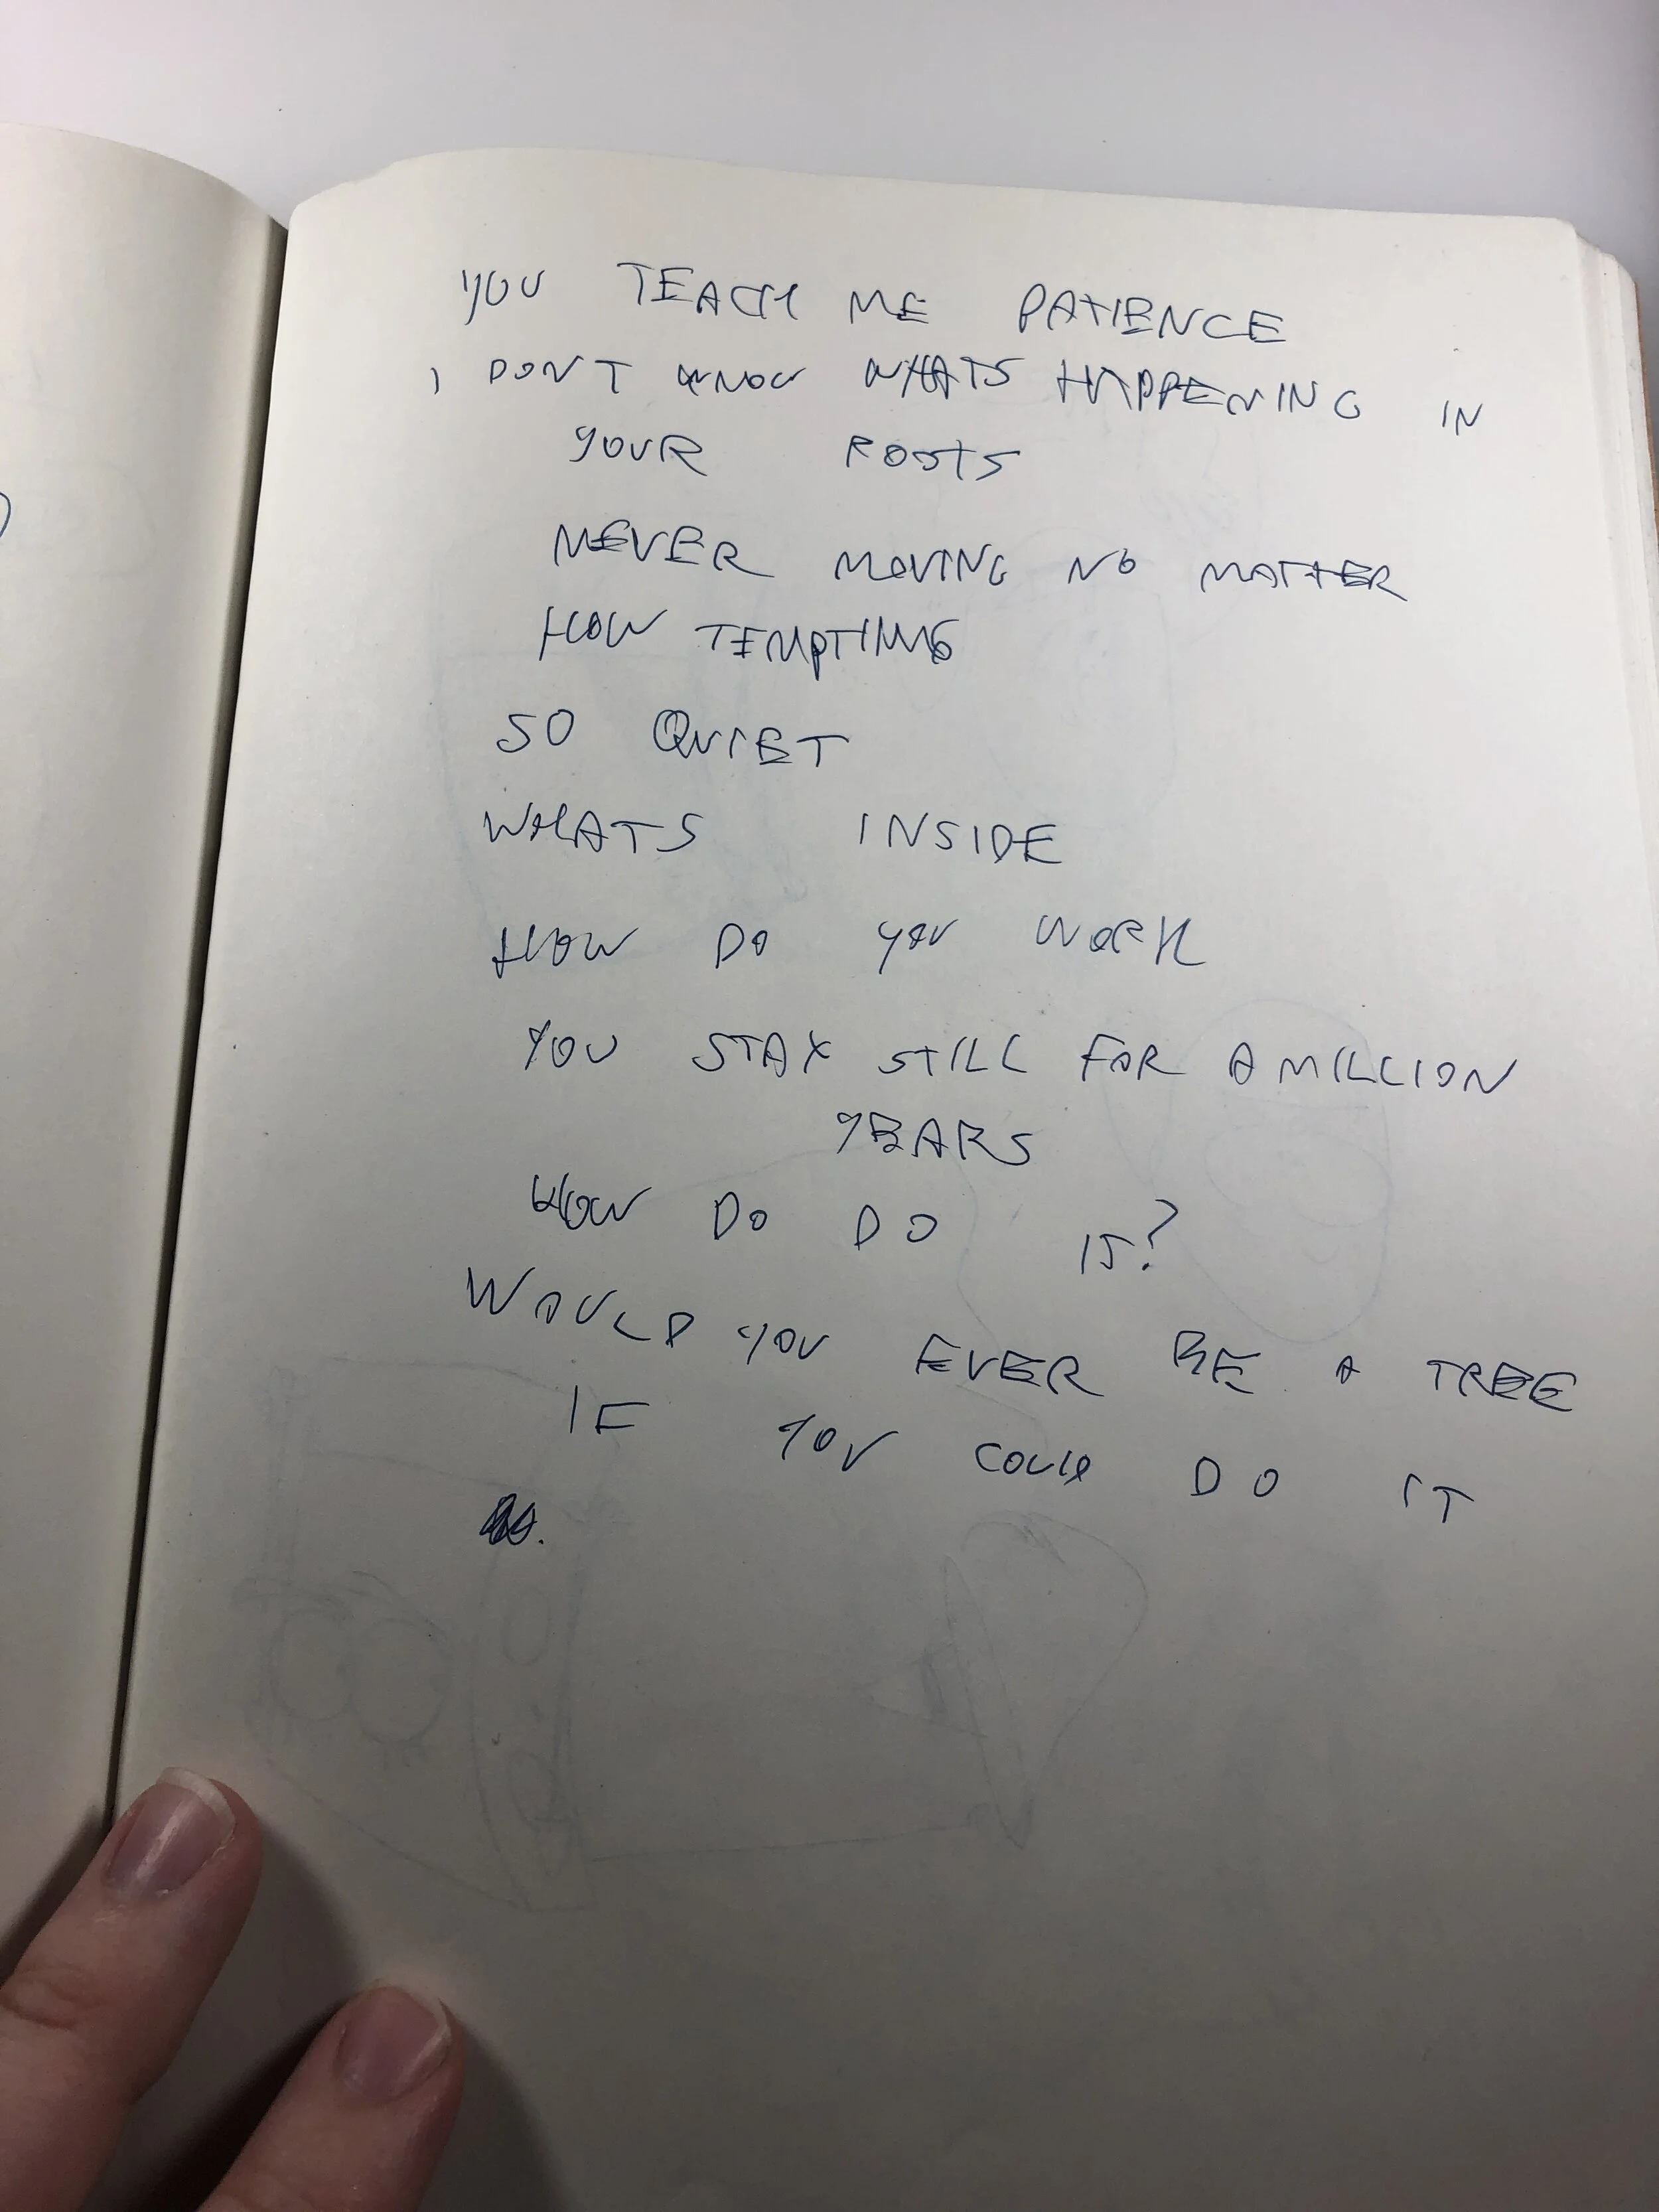 YOU TEACH ME PATIENCE
I DON'T KNOW WHATS HAPPENING IN
YOUR ROOTS
NEVER MOVING NO MATTER
HOW TEMPTING
SO QUIET
WHATS INSIDE
HOW DO YOU WORK
YOU STAY STILL FOR A MILLION
YEARS
HOW DO DO IT?
WOULD YOU EVER BE A TREE
IF YOU COULD DO IT